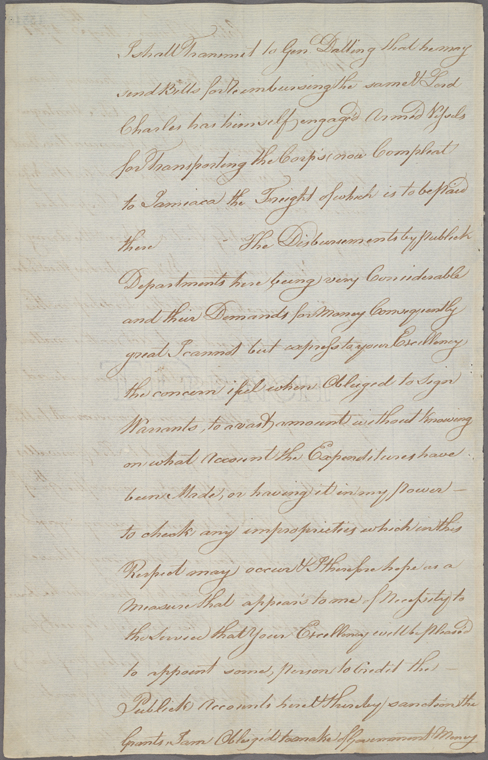 I shall Transmit to Gen^l Dalling that he may
send Bills for Reimbursing the same & Lord
Charles has himself engaged Armed Vessels
for Transporting the Corps now Compleat
to Jamiaca the Freight of which is to be paid
there The Disbursements by publick
Departments here being very Considerable
and their Demands for Money Consequently
great I cannot but express to your Excellency
the concern I feel when Obliged to Sign
Warrants, to a vast amount without knowing
on what Account the Expenditures have
been Made, or having it in my power —
to check any improprieties which in this
Respect may occur & I therefore hope as a
Measure that appears to me of Necessity to
the Service that Your Excellency will be pleased
to appoint some person to Credit the —
Publick Accounts here & thereby sanction the
Grants I am Obliged to make of Government Money